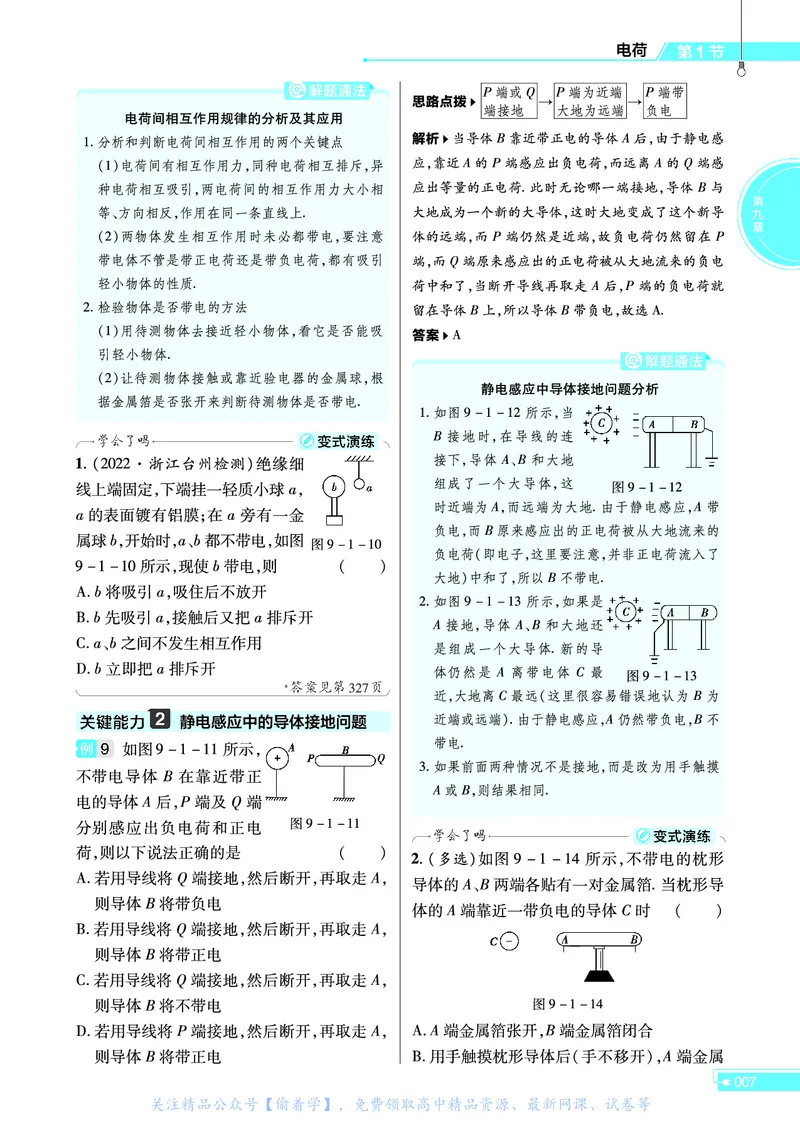 电荷 第1节
解题通法
电荷间相互作用规律的分析及其应用
1. 分析和判断电荷间相互作用的两个关键点
(1)电荷间有相互作用力,同种电荷相互排斥,异
种电荷相互吸引,两电荷间的相互作用力大小相
等、方向相反,作用在同一条直线上.
(2)两物体发生相互作用时未必都带电,要注意
带电体不管是带正电荷还是带负电荷,都有吸引
轻小物体的性质.
2. 检验物体是否带电的方法
(1)用待测物体去接近轻小物体,看它是否能吸
引轻小物体.
(2)让待测物体接触或靠近验电器的金属球,根
据金属箔是否张开来判断待测物体是否带电.
学会了吗 变式演练
1. (2022·浙江台州检测)绝缘细
线上端固定,下端挂一轻质小球 a,
a 的表面镀有铝膜;在 a 旁有一金
属球 b,开始时,a、b 都不带电,如图
9-1-10 所示,现使 b 带电,则 ( )
b a
图 9-1-10
A. b 将吸引 a,吸住后不放开
B. b 先吸引 a,接触后又把 a 排斥开
C. a、b 之间不发生相互作用
D. b 立即把 a 排斥开
答案见第 327 页
关键能力 2 静电感应中的导体接地问题
例 9 如图 9-1-11 所示,
不带电导体 B 在靠近带正
电的导体 A 后,P 端及 Q 端
分别感应出负电荷和正电
荷,则以下说法正确的是 ( )
A + P B Q
图 9-1-11
A. 若用导线将 Q 端接地,然后断开,再取走 A,
则导体 B 将带负电
B. 若用导线将 Q 端接地,然后断开,再取走 A,
则导体 B 将带正电
C. 若用导线将 Q 端接地,然后断开,再取走 A,
则导体 B 将不带电
D. 若用导线将 P 端接地,然后断开,再取走 A,
则导体 B 将带正电
思路点拨 P 端或 Q 端接地 → P 端为近端 大地为远端 → P 端带负电
解析 当导体 B 靠近带正电的导体 A 后,由于静电感
应,靠近 A 的 P 端感应出负电荷,而远离 A 的 Q 端感
应出等量的正电荷. 此时无论哪一端接地,导体 B 与
大地成为一个新的大导体,这时大地变成了这个新导
体的远端,而 P 端仍然是近端,故负电荷仍然留在 P
端,而 Q 端原来感应出的正电荷被从大地流来的负电
荷中和了,当断开导线再取走 A 后,P 端的负电荷就
留在导体 B 上,所以导体 B 带负电,故选 A.
答案 A
解题通法
静电感应中导体接地问题分析
1. 如图 9-1-12 所示,当
B 接地时,在导线的连
接下,导体 A、B 和大地
组成了一个大导体,这
C A B
图 9-1-12
时近端为 A,而远端为大地. 由于静电感应,A 带
负电,而 B 原来感应出的正电荷被从大地流来的
负电荷(即电子,这里要注意,并非正电荷流入了
大地)中和了,所以 B 不带电.
2. 如图 9-1-13 所示,如果是
A 接地,导体 A、B 和大地还
是组成一个大导体. 新的导
体仍然是 A 离带电体 C 最
C A B
图 9-1-13
近,大地离 C 最远(这里很容易错误地认为 B 为
近端或远端). 由于静电感应,A 仍然带负电,B 不
带电.
3. 如果前面两种情况不是接地,而是改为用手触摸
A 或 B,则结果相同.
学会了吗 变式演练
2. (多选)如图 9-1-14 所示,不带电的枕形
导体的 A、B 两端各贴有一对金属箔. 当枕形导
体的 A 端靠近一带负电的导体 C 时 ( )
C - A B
图 9-1-14
A. A 端金属箔张开,B 端金属箔闭合
B. 用手触摸枕形导体后(手不移开),A 端金属
第九章
007
关注精品公众号【偷着学】,免费领取高中精品资源、最新网课、试卷等